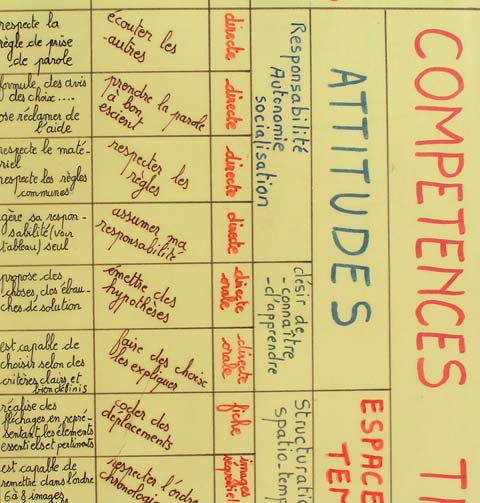 respecte la
règle de prise
de parole
écouter les
autres
directe
formule, des avis
des choix....
ose réclamer de
l'aide
prendre la parole
à bon
escient
directe
respecte le maté-
riel
respecte les règles
communes
respecter les
règles
directe
gère sa respon-
sabilité (voir
tableau) seul
assumer ma
responsabilité
directe
Responsabilité
Autonomie
socialisation
propose des
choses, des ébau-
ches de solution
émettre des
hypothèses
directe
orale
est capable de
choisir selon des
critères clairs et
bien définis
faire des choix
les expliquer
directe
orale
désir de:
- connaître
- d'apprendre
ATTITUDES
réalise des
fléchages en repré-
sentant les éléments
essentiels et pertinents
coder des
déplacements
fiche
est capable de
remettre dans l'ordre
6 à 8 images
respecter l'ordre
chronologi
images
séquentiel
Structurati
spatio-temp
ESPACE
TEM
COMPETENCES T